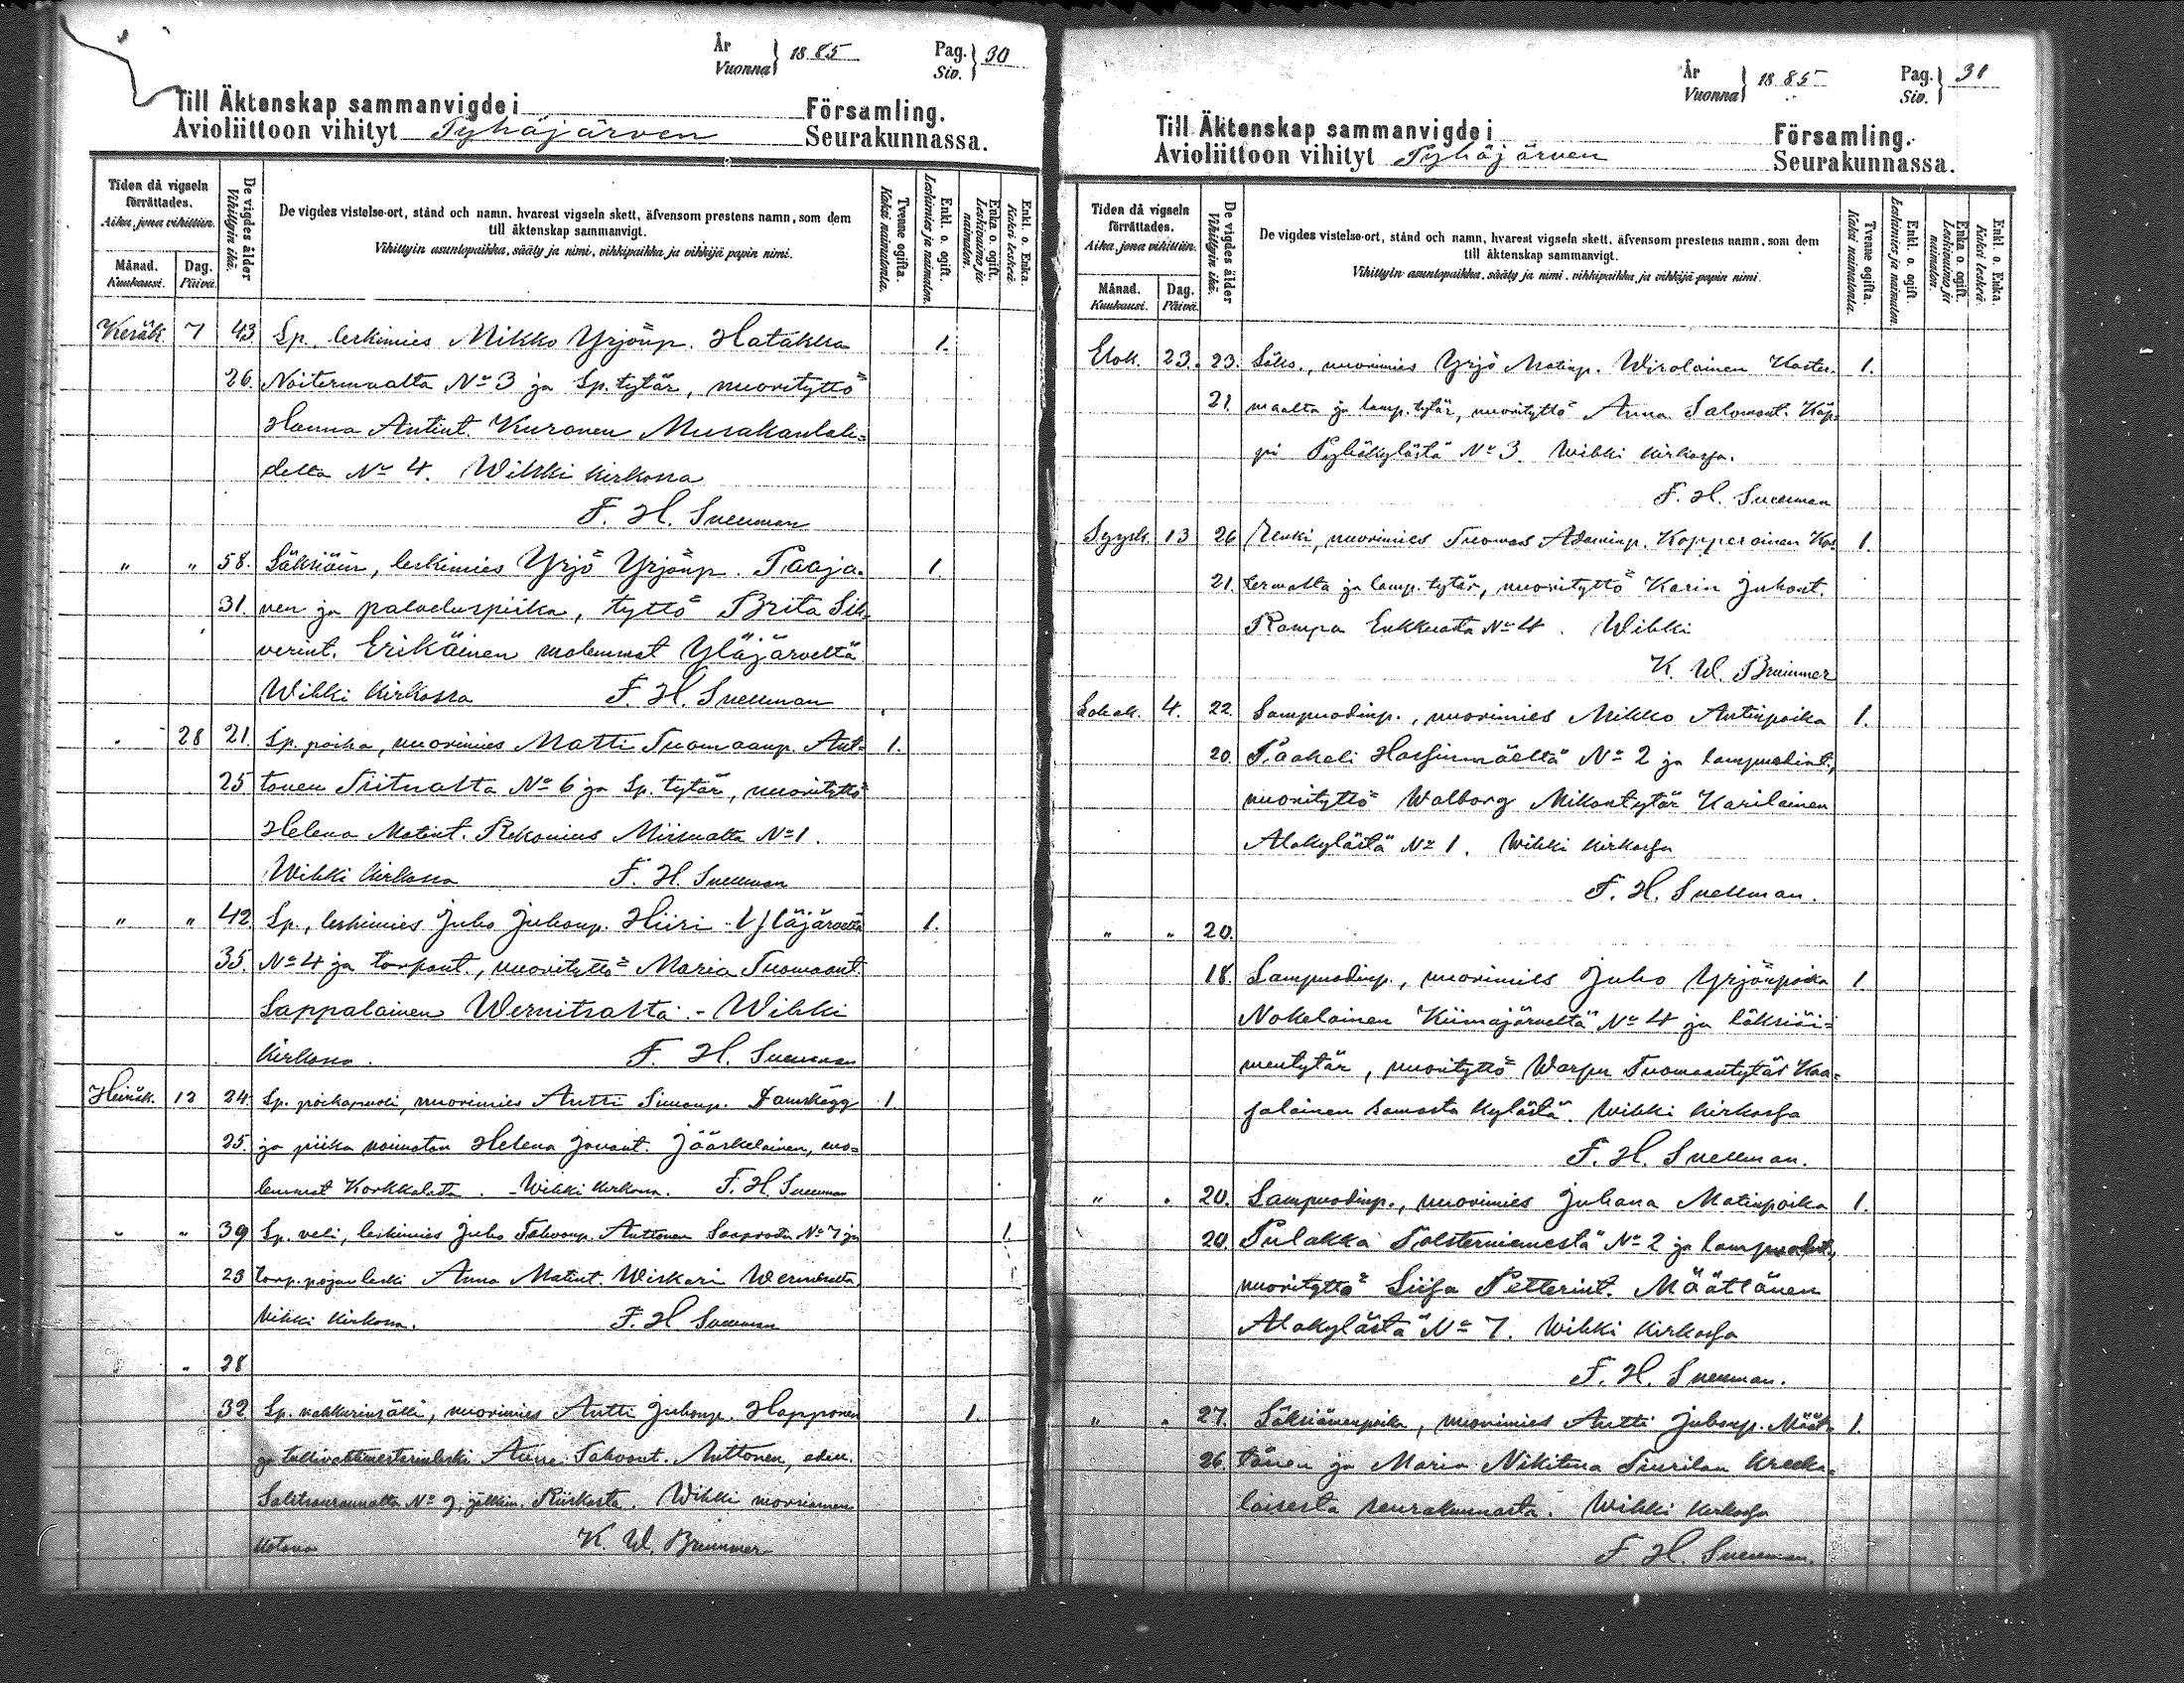 År
Vuonna } 1885
Pag.
Siv. } 30
Till Äktenskap sammanvigde i Församling.
Avioliittoon vihityt Pyhäjärven Seurakunnassa.
Tiden då vigseln förrättades.
Aika, jona vihittiin.
Månad. Kuukausi.
Dag. Päivä.
De vigdes ålder
Vihittyin ikä.
De vigdes vistelse-ort, stånd och namn, hvarest vigseln skett, äfvensom prestens namn, som dem
till äktenskap sammanvigt.
Vihittyin asuntopaikka, sääty ja nimi, vihkipaikka ja vihkijä papin nimi.
Tvenne ogifta.
Kaksi naimatonta.
Enkl. o. ogift.
Leskimies ja naimaton.
Enka o. ogift.
Leskivaimo ja naimaton.
Enkl. o. Enka.
Kaksi leskeä.
Kesäk. 7 43 Sp. leskimies Mikko Yrjönp. Hatakka 1.
26. Noitermaalta No 3 ja Sp. tytär, nuorityttö
Hanna Antint. Kuronen Musakanlah-
delta No 4. Wihki kirkossa
F. H. Snellman
" " 58. Läksiäin, leskimies Yrjö Yrjönp. Paaja- 1.
31. nen ja palveluspiika, tyttö Brita Sih-
verint. Erikäinen molemmat Yläjärveltä
Wihki kirkossa F. H. Snellman
" 28 21. Sp. poika, nuorimies Matti Tuomaanp. Ant- 1.
25 tonen Tiitualta No 6 ja Sp. tytär, nuorityttö
Helena Matint. Rekonius Miisualta No 1.
Wihki kirkossa F. H. Snellman
" " 42. Sp., leskimies Juho Juhonp. Hiiri Yläjärveltä 1.
35. No 4 ja torpant., nuorityttö Maria Tuomaant.
Lappalainen Wernitsalta. - Wihki
kirkossa. F. H. Snellman
Heinäk. 12 24. Sp. poikapuoli, nuorimies Antti Simonp. Danskägg 1.
25. ja piika naimaton Helena Jonant. Jääskelainen, mo-
lemmat Korkkalasta. - Wihki kirkossa. F. H. Snellman
" " 39 Sp. veli, leskimies Juho Tahvonp. Anttonen No 7 ja 1.
23 torp. pojan leski Anna Matint. Wiskari Wernitsalta.
Wihki kirkossa. F. H. Snellman
" " 28
32 Sp. nahkurinsälli, nuorimies Antti Juhonp. Happonen 1.
ja Anna Tahvont. Anttonen, edell.
No 9, jälkim. Riiskasta. Wihki morsiamen
kotona K. W. Brummer
År
Vuonna } 1885
Pag.
Siv. } 31
Till Äktenskap sammanvigde i Församling.
Avioliittoon vihityt Pyhäjärven Seurakunnassa.
Tiden då vigseln förrättades.
Aika, jona vihittiin.
Månad. Kuukausi.
Dag. Päivä.
De vigdes ålder
Vihittyin ikä.
De vigdes vistelse-ort, stånd och namn, hvarest vigseln skett, äfvensom prestens namn, som dem
till äktenskap sammanvigt.
Vihittyin asuntopaikka, sääty ja nimi, vihkipaikka ja vihkijä papin nimi.
Tvenne ogifta.
Kaksi naimatonta.
Enkl. o. ogift.
Leskimies ja naimaton.
Enka o. ogift.
Leskivaimo ja naimaton.
Enkl. o. Enka.
Kaksi leskeä.
Elok. 23. 23. Läks., nuorimies Yrjö Matinp. Wirolainen Koster- 1.
21. maalta ja lamp. tytär, nuorityttö Anna Salomont. Käp-
pi Pyhäkylästä No 3. Wihki kirkossa.
F. H. Snellman
Syysk. 13 26 Renki, nuorimies Tuomas Adaminp. Kopperoinen Kos- 1.
21. termalta ja lamp. tytär, nuorityttö Karin Juhont.
Rampa Enkkuasta No 4. Wihki
K. W. Brummer
Lokak. 4. 22. Lampuodinp., nuorimies Mikko Antinpoika 1.
20. Paakeli Hassinmäeltä No 2 ja lampuodint.,
nuorityttö Walborg Mikontytär Karilainen
Alakylästä No 1. Wihki kirkossa
F. H. Snellman.
" " 20.
18. Lampuodinp., nuorimies Juho Yrjönpoika 1
Nokelainen Kiimajärveltä No 4 ja läksiäi-
mentytär, nuorityttö Warpu Tuomaantytär Kaa-
salainen samasta kylästä. Wihki kirkossa
F. H. Snellman.
" " 20. Lampuodinp., nuorimies Juhana Matinpoika 1.
20. Pulakka Tolsterniemestä No 2 ja lampuodint.,
nuorityttö Liisa Petterint. Määttänen
Alakylästä No 7. Wihki kirkossa
F. H. Snellman.
" " 27. Läksiämenpoika, nuorimies Antti Juhonp. Määt- 1.
26. tänen ja Maria Nikitina Siurilan kreika-
laisesta seurakunnasta. Wihki kirkossa
F. H. Snellman.